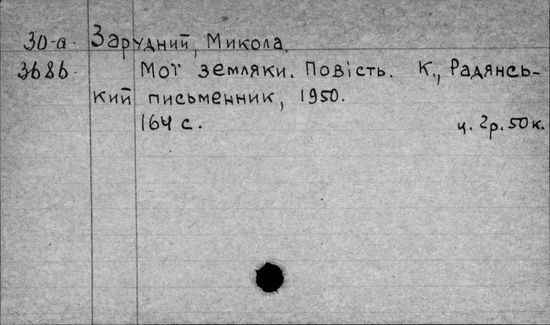 30-а. Зарудний, Микола.
3686. Мої земляки. Повість. К., Радянсь-
кий письменник, 1950.
164 с. ц. 2р. 50 к.